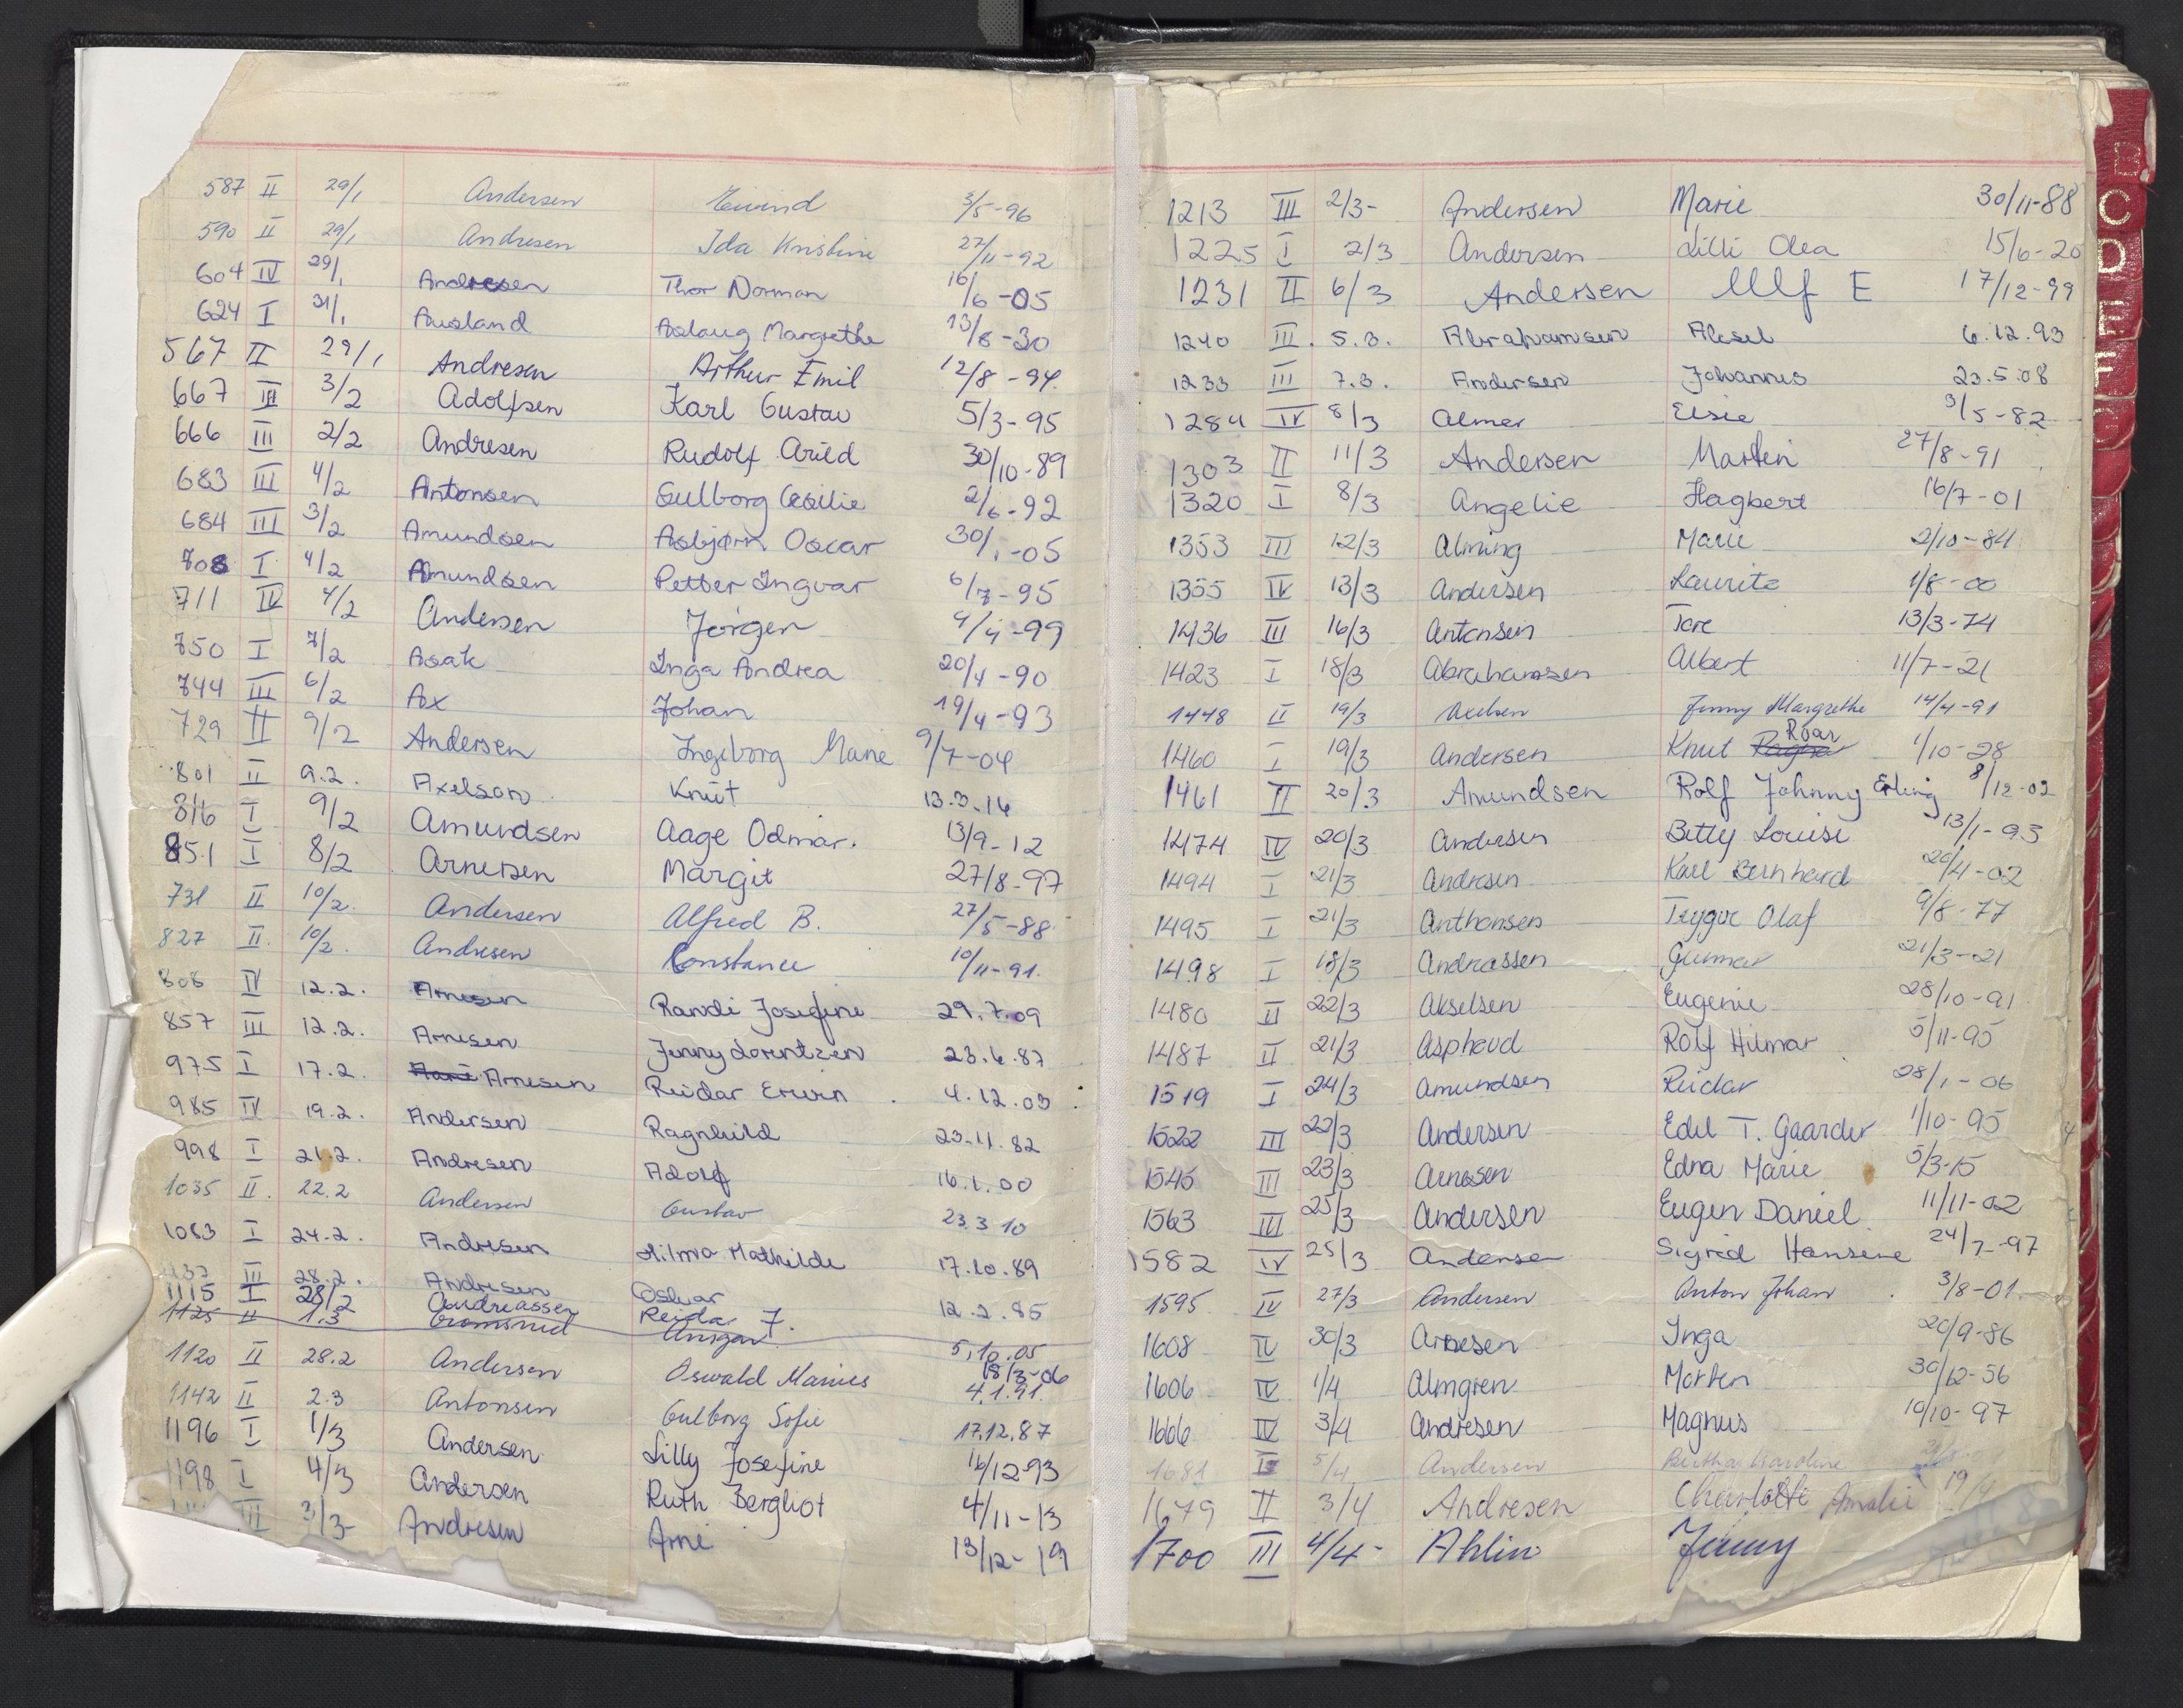 587 II 29/1 Andersen Eivind 3/5-96
590 II 29/1 Andresen Ida Kristine 27/11-92
604 IV 29/1 Andresen Thor Norman 16/6-05
624 I 31/1 Ausland Aslaug Margrethe 13/8-30
567 II 29/1 Andresen Arthur Emil 12/8-94
667 III 3/2 Adolfsen Karl Gustav 5/3-95
666 III 2/2 Andresen Rudolf Arild 30/10-89
683 III 4/2 Antonsen Gulborg Cesilie 2/6-92
684 III 3/2 Amundsen Asbjørn Oscar 30/1-05
708 I 4/2 Amundsen Petter Ingvar 6/7-95
711 IV 4/2 Andersen Jørgen 4/4-99
750 I 7/2 Asak Inga Andrea 20/4-90
744 III 6/2 Ax Johan 19/4-93
729 II 9/2 Andersen Ingeborg Marie 9/7-04
801 II 9.2. Axelson Knut 13.3.14
816 I 9/2 Amundsen Aage Odmar. 13/9-12
851 I 8/2 Arnesen Margit 27/8-97
731 II 10/2. Andersen Alfred B. 27/5-88
827 II. 10/2. Andresen Constance 10/11-91.
808 IV 12.2. Arnesen Randi Josefine 29.7.09
857 III 12.2. Arnesen Jenny Lorentzen 23.6.87
975 I 17.2. Arnesen Reidar Erwin 4.12.03
985 IV 19.2. Andersen Ragnhild 23.11.82
998 I 21.2. Andresen Adolf 16.1.00
1035 II. 22.2 Andersen Gustav 23.3.10
1083 I 24.2. Andresen Hilma Mathilde 17.10.89
III 28.2. Andresen Oskar 12.2.85
1115 I 28/2 Andreassen Reidar F.
1125 II 1.3 Ansgar 5.10.05
18/3-06
1120 II 28.2 Andersen Oswald Marius 4.1.91.
1142 II 2.3 Antonsen Gulborg Sofie 17.12.87
1196 I 1/3 Andersen Lilly Josefine 16/12-93
1198 I 4/3 Andersen Ruth Bergliot 4/11-13
III 3/3- Andresen Arne 13/12-19
1213 III 2/3- Andersen Marie 30/11-88
1225 I 2/3 Andersen Lilli Olea 15/6-20
1231 II 6/3 Andersen Ulf E 17/12-99
1240 III. 5.3. Abrahamsen Aksel 6.12.93
1233 III 7.3. Andersen Johannes 23.5.08
1284 IV 8/3 Almer Elsie 3/5-82
1303 II 11/3 Andersen Martin 27/8-91
1320 I 8/3 Angelie Hagbert 16/7-01
1353 III 12/3 Alming Marie 2/10-84
1355 IV 13/3 Andersen Lauritz 1/8-00
1436 III 16/3 Antonsen Tore 13/3-74
1423 I 18/3 Abrahamsen Albert 11/7-21
1448 II 19/3 Jenny Margrethe 14/4-91
1460 I 19/3 Andersen Knut Ragnar Roar 1/10-28
1461 II 20/3 Amundsen Rolf Johnny Erling 8/12-02
1474 IV 20/3 Andersen Betty Louise 13/1-93
1494 I 21/3 Andresen Karl Bernhard 20/4-02
1495 I 21/3 Anthonsen Trygve Olaf 9/8-77
1498 I 18/3 Andreassen Gunnar 21/3-21
1480 II 22/3 Akselsen Eugenie 28/10-91
1487 II 21/3 Asphaud Rolf Hilmar 5/11-95
1519 I 24/3 Amundsen Reidar 28/1-06
1522 III 22/3 Andersen Edel T. Gaarder 1/10-95
1545 III 23/3 Arnesen Edna Marie 5/3-15
1563 III 25/3 Andersen Eugen Daniel 11/11-02
1582 IV 25/3 Andersen Sigrid Hansine 24/7-97
1595 IV 27/3 Andersen Anton Johan 3/8-01
1608 IV 30/3 Arnesen Inga 20/9-86
1606 IV 1/4 Almgren Morten 30/12-56
1666 IV 3/4 Andresen Magnus 10/10-97
1681 5/4 Andersen Bertha Karoline
1679 II 3/4 Andresen Charlotte Amalie 19/
1700 III 4/4- Ahlin Jenny
B
C
D
E
F
G